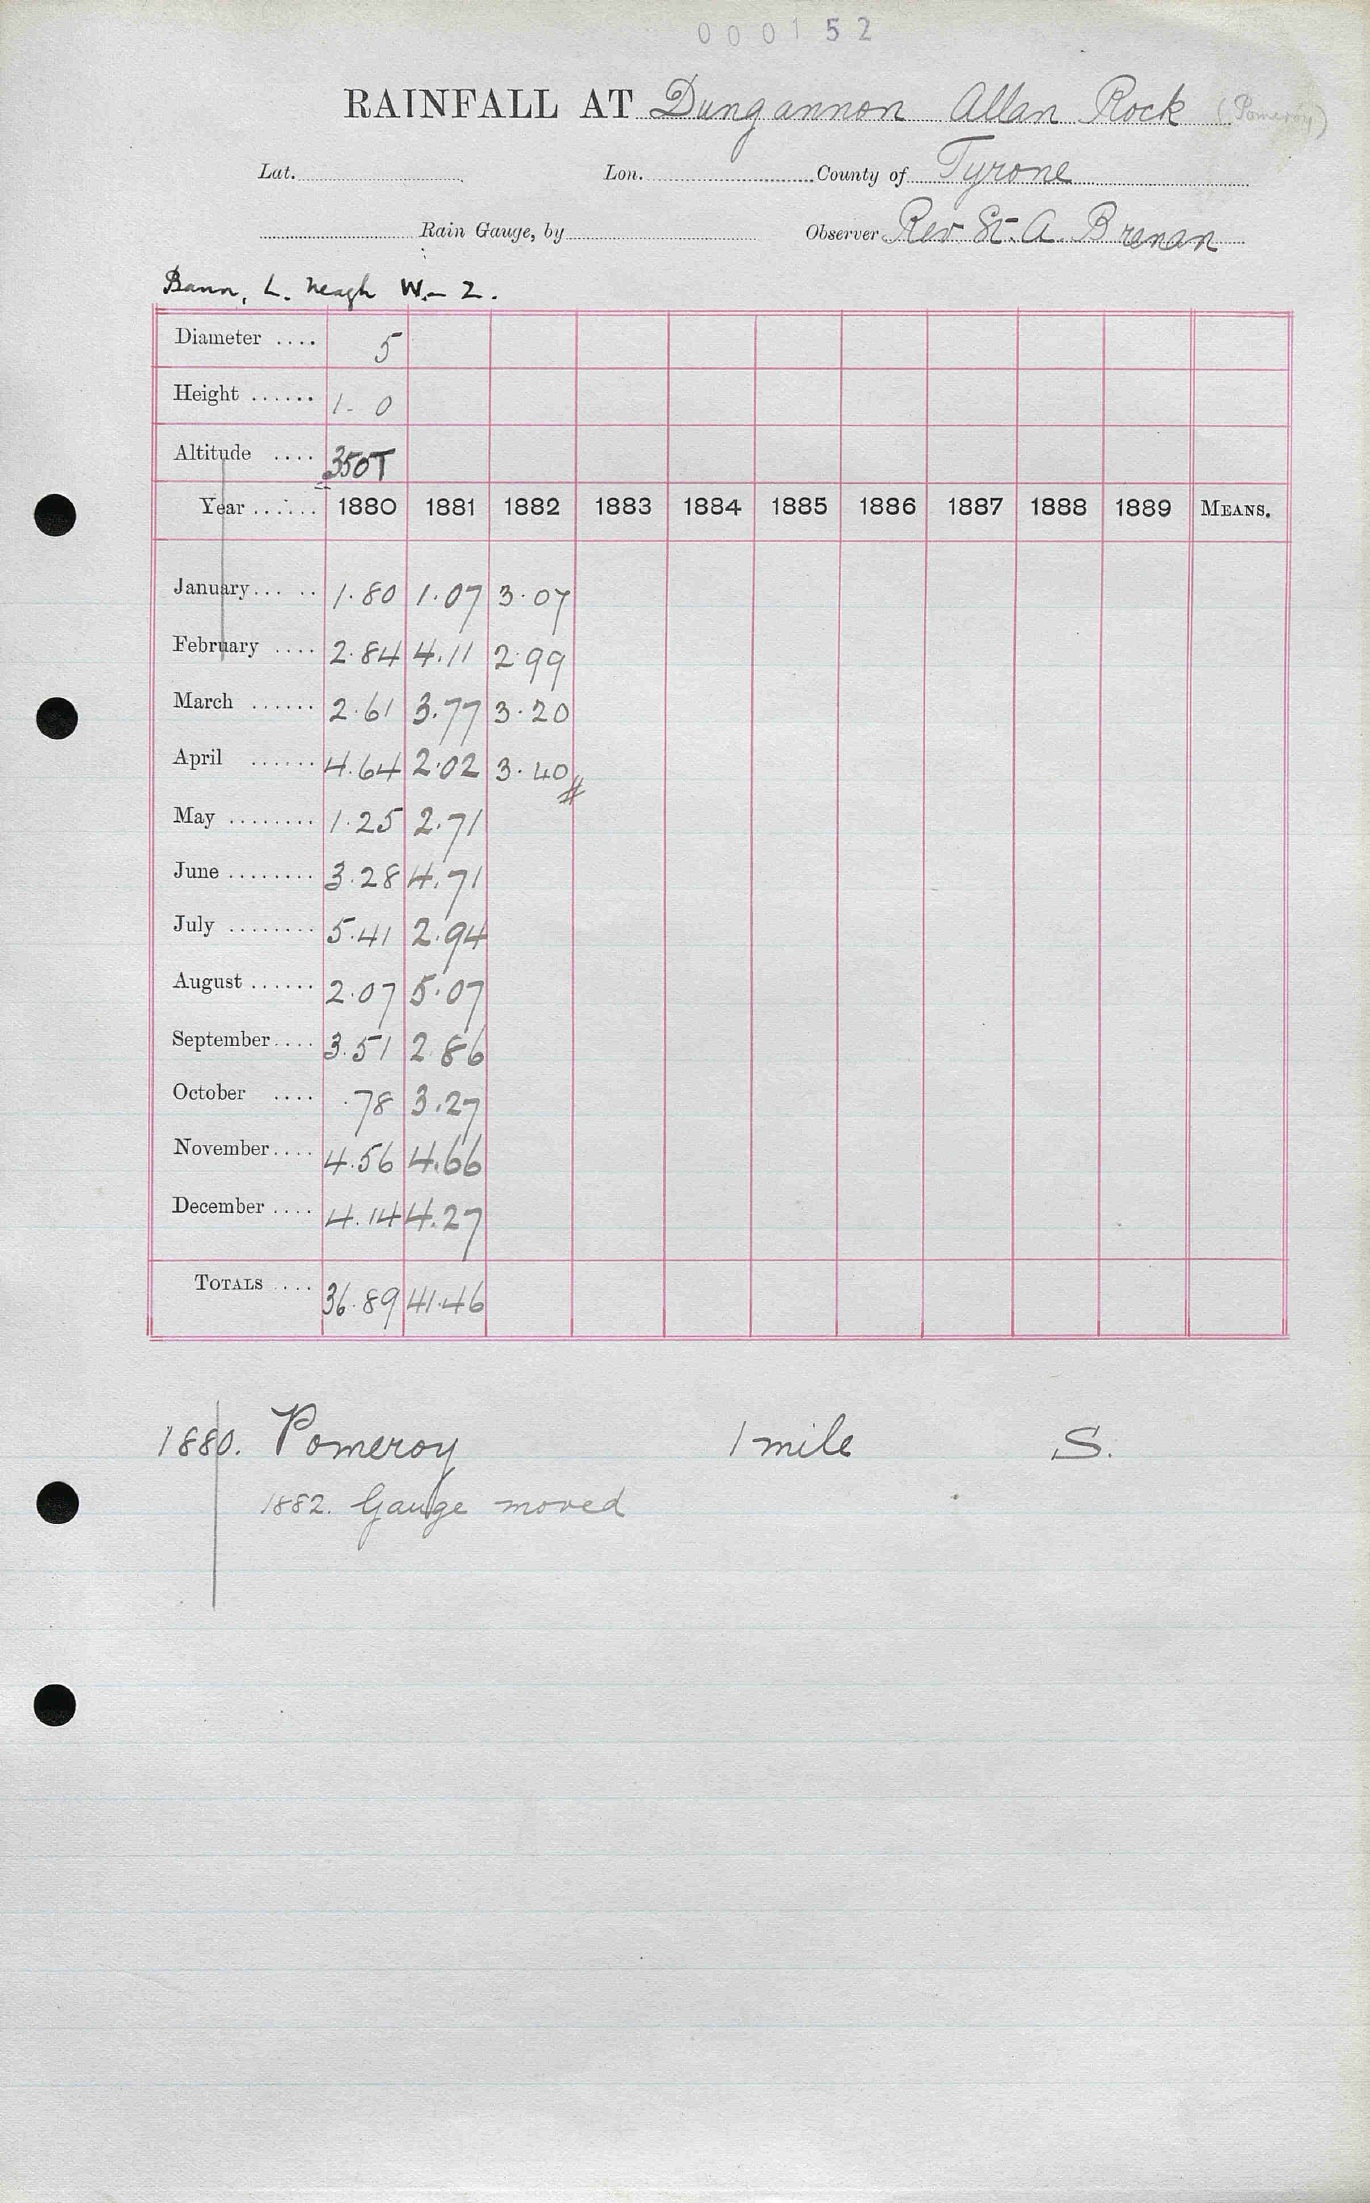 000152
RAINFALL AT Dungannon Allan Rock (Pomeroy)
Lat. Lon. County of Tyrone
Rain Gauge, by Observer Rev St. A. Brenan
Bann, L. Neagh W.– 2.
Diameter .... 5
Height ...... 1- 0
Altitude .... 350T
Year ...... 1880 1881 1882 1883 1884 1885 1886 1887 1888 1889 MEANS.
January... .. 1.80 1.07 3.07
February .... 2.84 4.11 2.99
March ...... 2.61 3.77 3.20
April ...... 4.64 2.02 3.40
May ........ 1.25 2.71
June ........ 3.28 4.71
July ........ 5.41 2.94
August ...... 2.07 5.07
September.... 3.51 2.86
October .... .78 3.27
November.... 4.56 4.66
December .... 4.14 4.27
TOTALS .... 36.89 41.46
1880. Pomeroy 1 mile S.
1882. Gauge moved